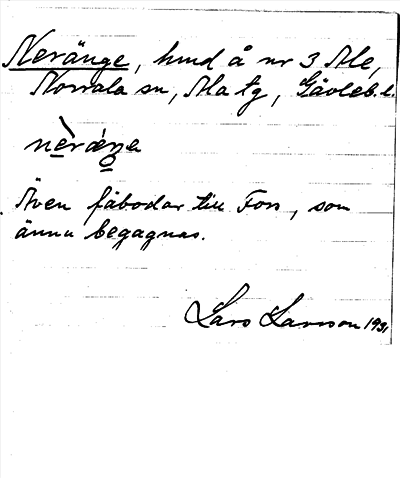 Neränge, hmd å nr 3 Ale,
Norrala sn, Ala tg, Gävleb. l.
Även fäbodar till Fors, som
ännu begagnas.
Lars Larsson 1931